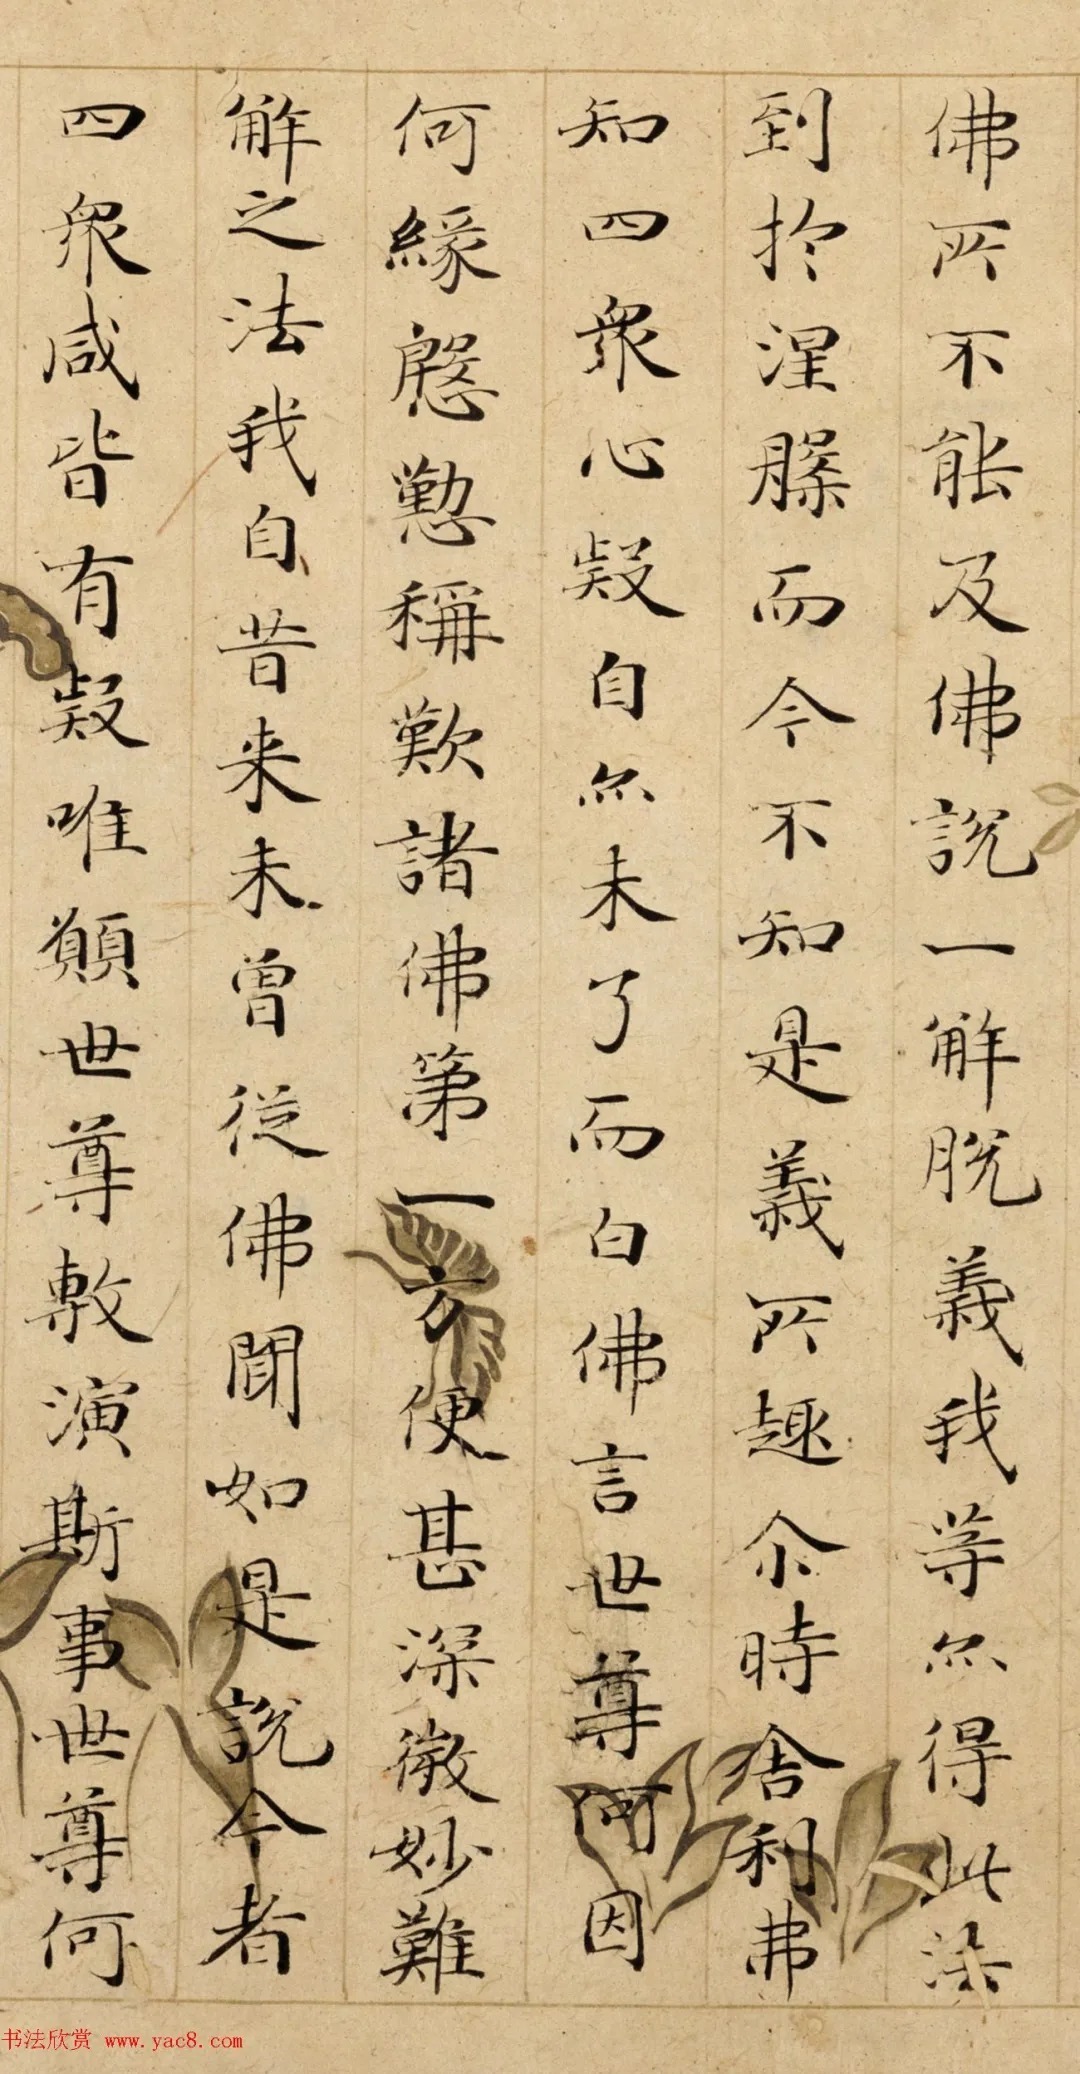 佛所不能及佛說一解脫義我等亦得此法
到於涅槃而今不知是義所趣尒時舍利弗
知四衆心疑自亦未了而白佛言世尊何因
何緣慇懃稱歎諸佛第一方便甚深微妙難
解之法我自昔来未曾從佛聞如是說今者
四衆咸皆有疑唯願世尊敷演斯事世尊何
书法欣赏 www.yac8.com